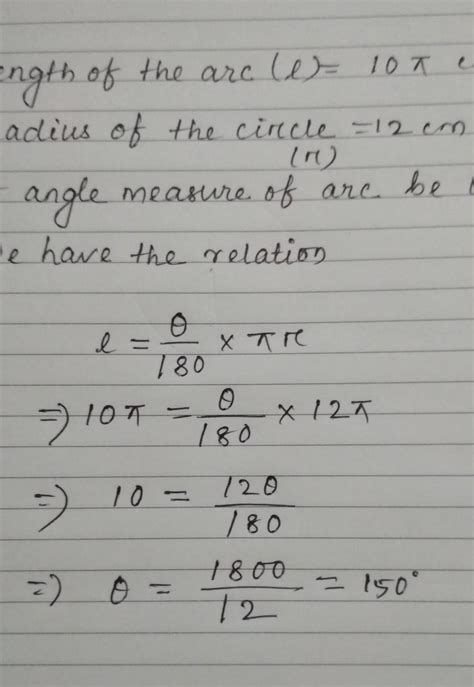 ength of the arc (l) = 10π c
adius of the circle = 12 cm
(r)
angle measure of arc be
e have the relation
l = θ/180 × πr
⇒ 10π = θ/180 × 12π
⇒ 10 = 12θ/180
⇒ θ = 1800/12 = 150°